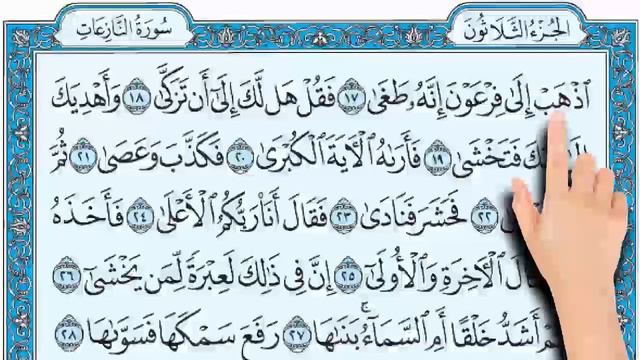 الجُزْءُ الثَّلَاثُونَ
سُورَةُ النَّازِعَاتِ
ٱذْهَبْ إِلَىٰ فِرْعَوْنَ إِنَّهُۥ طَغَىٰ ١٧ فَقُلْ هَل لَّكَ إِلَىٰٓ أَن تَزَكَّىٰ ١٨ وَأَهْدِيَكَ
فَتَخْشَىٰ ١٩ فَأَرَىٰهُ ٱلْأٓيَةَ ٱلْكُبْرَىٰ ٢٠ فَكَذَّبَ وَعَصَىٰ ٢١ ثُمَّ
٢٢ فَحَشَرَ فَنَادَىٰ ٢٣ فَقَالَ أَنَا۠ رَبُّكُمُ ٱلْأَعْلَىٰ ٢٤ فَأَخَذَهُ
ٱلْأٓخِرَةِ وَٱلْأُولَىٰٓ ٢٥ إِنَّ فِي ذَٰلِكَ لَعِبْرَةً لِّمَن يَخْشَىٰٓ ٢٦
أَشَدُّ خَلْقًا أَمِ ٱلسَّمَآءُ ۚ بَنَىٰهَا ٢٧ رَفَعَ سَمْكَهَا فَسَوَّىٰهَا ٢٨